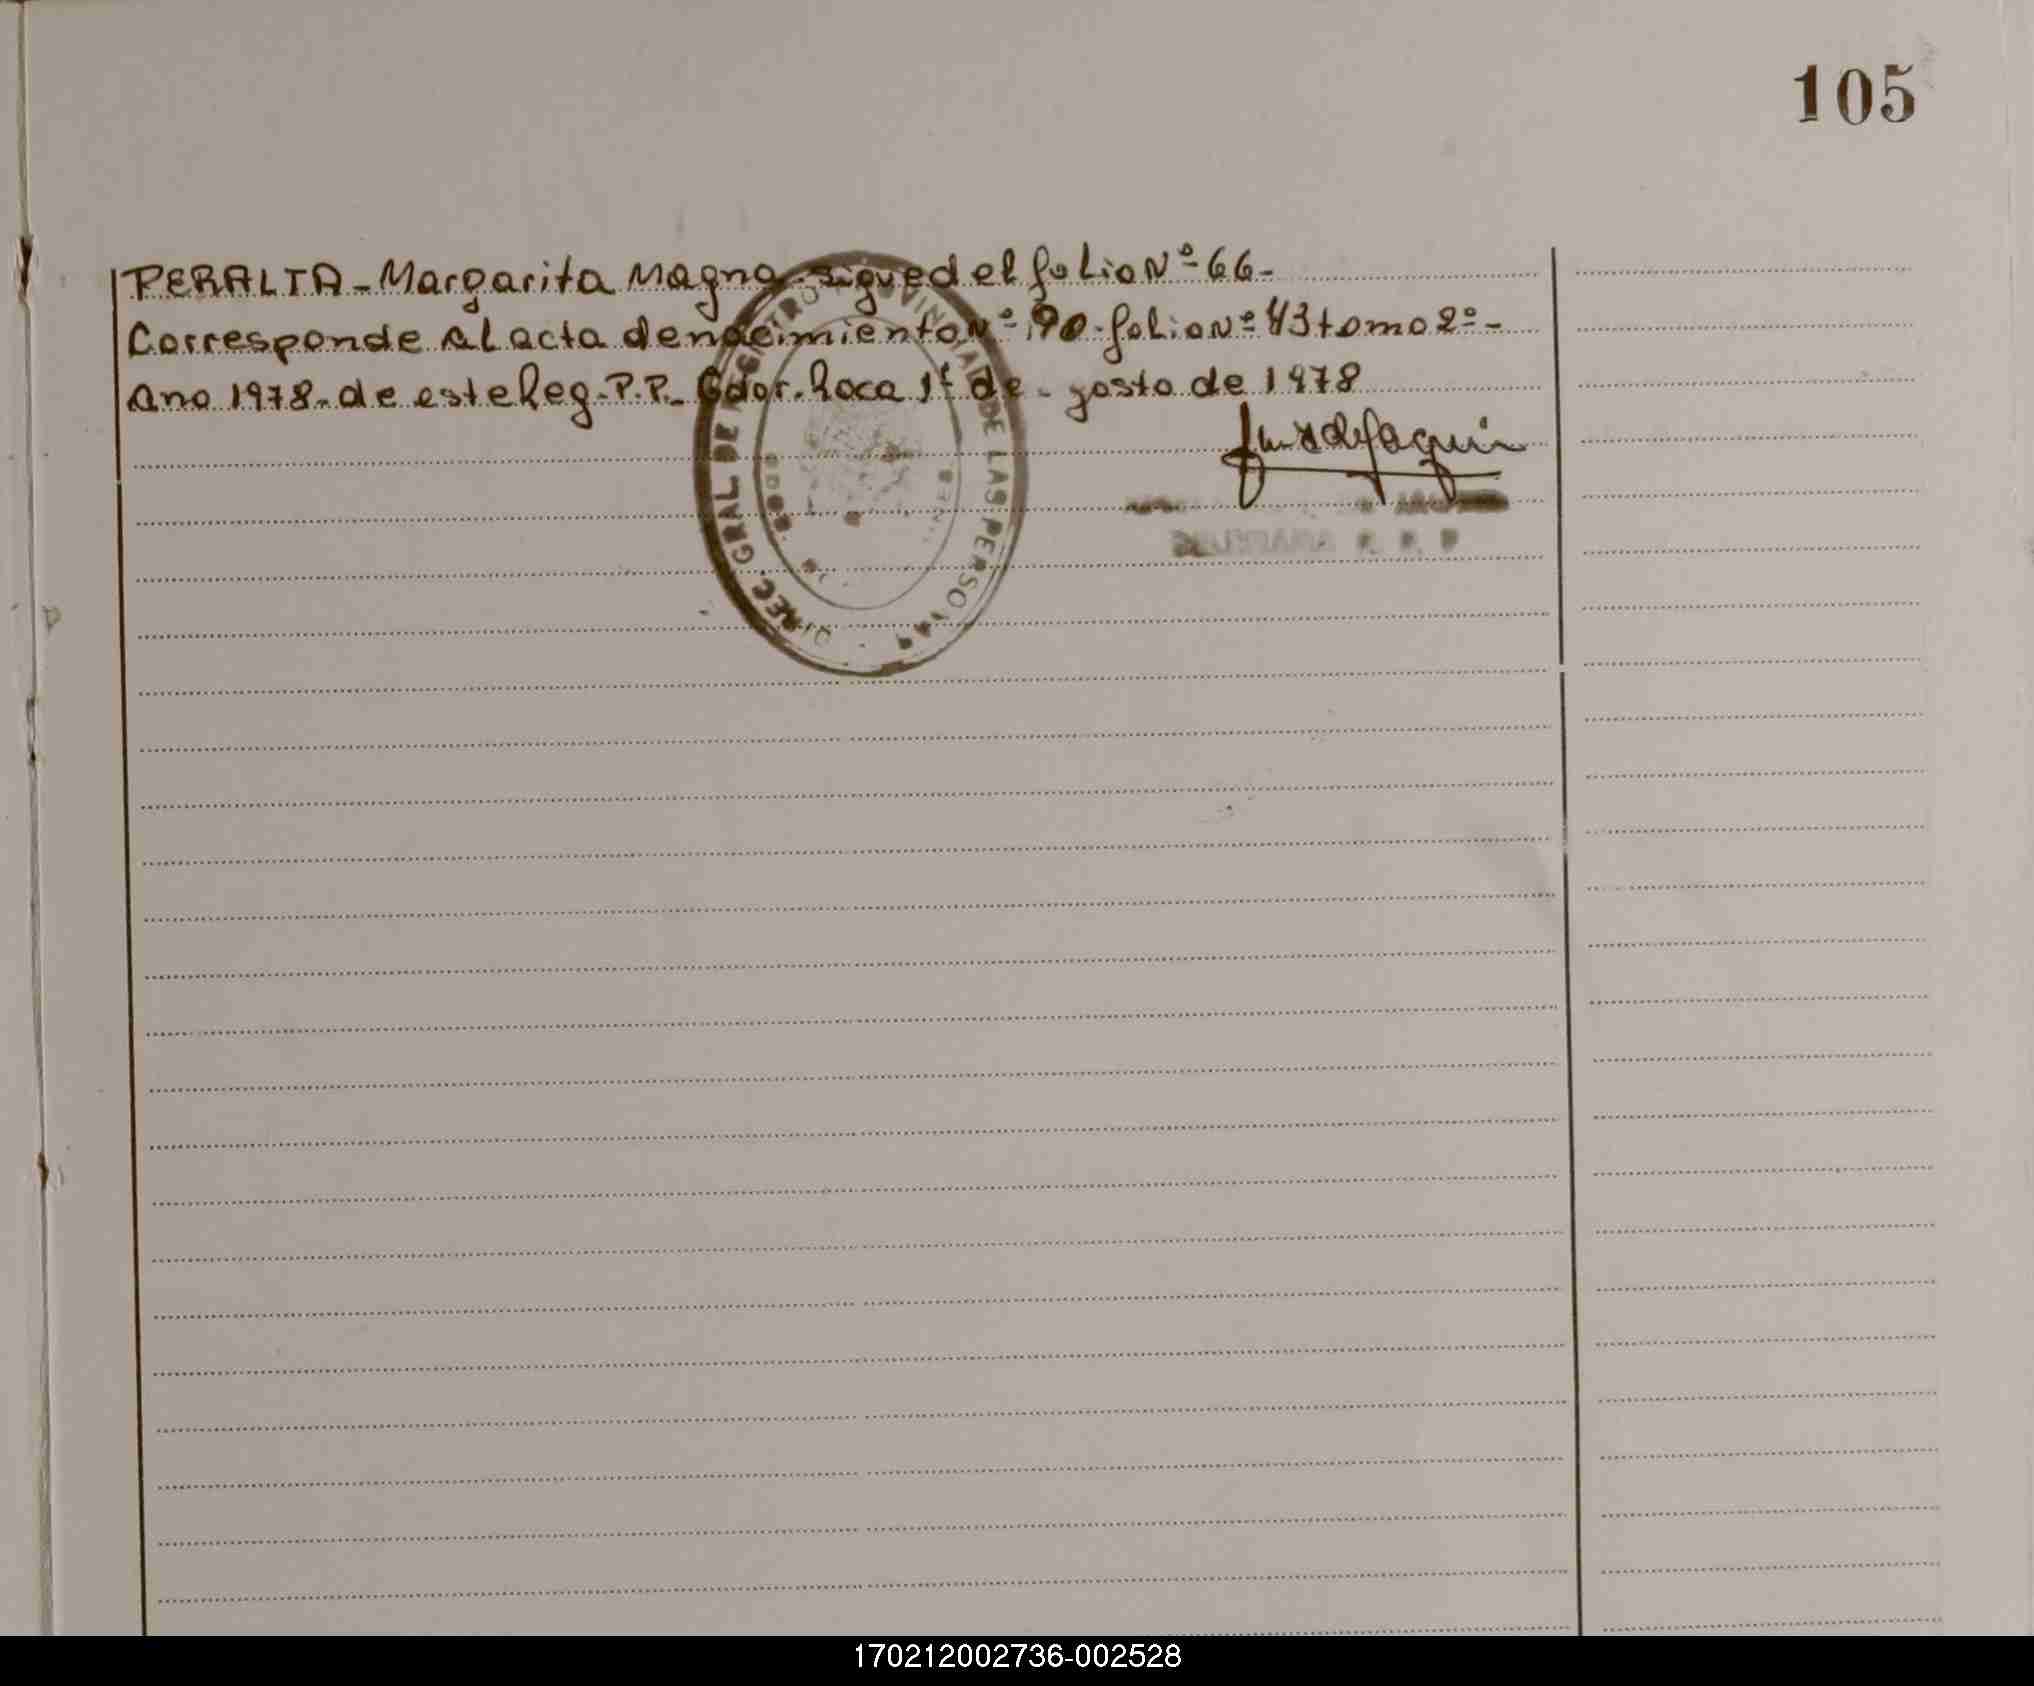 105
PERALTA - Margarita Magna - sigue del folio Nº 66 -
Corresponde al acta de nacimiento Nº 90 - folio Nº 43 tomo 2º -
Año 1978 - de este Reg. P.P. - Gdor. Roca 1º de gosto de 1978
DIREC GRAL DE REGISTRO PROVINCIAL DE LAS PERSONAS
170212002736-002528